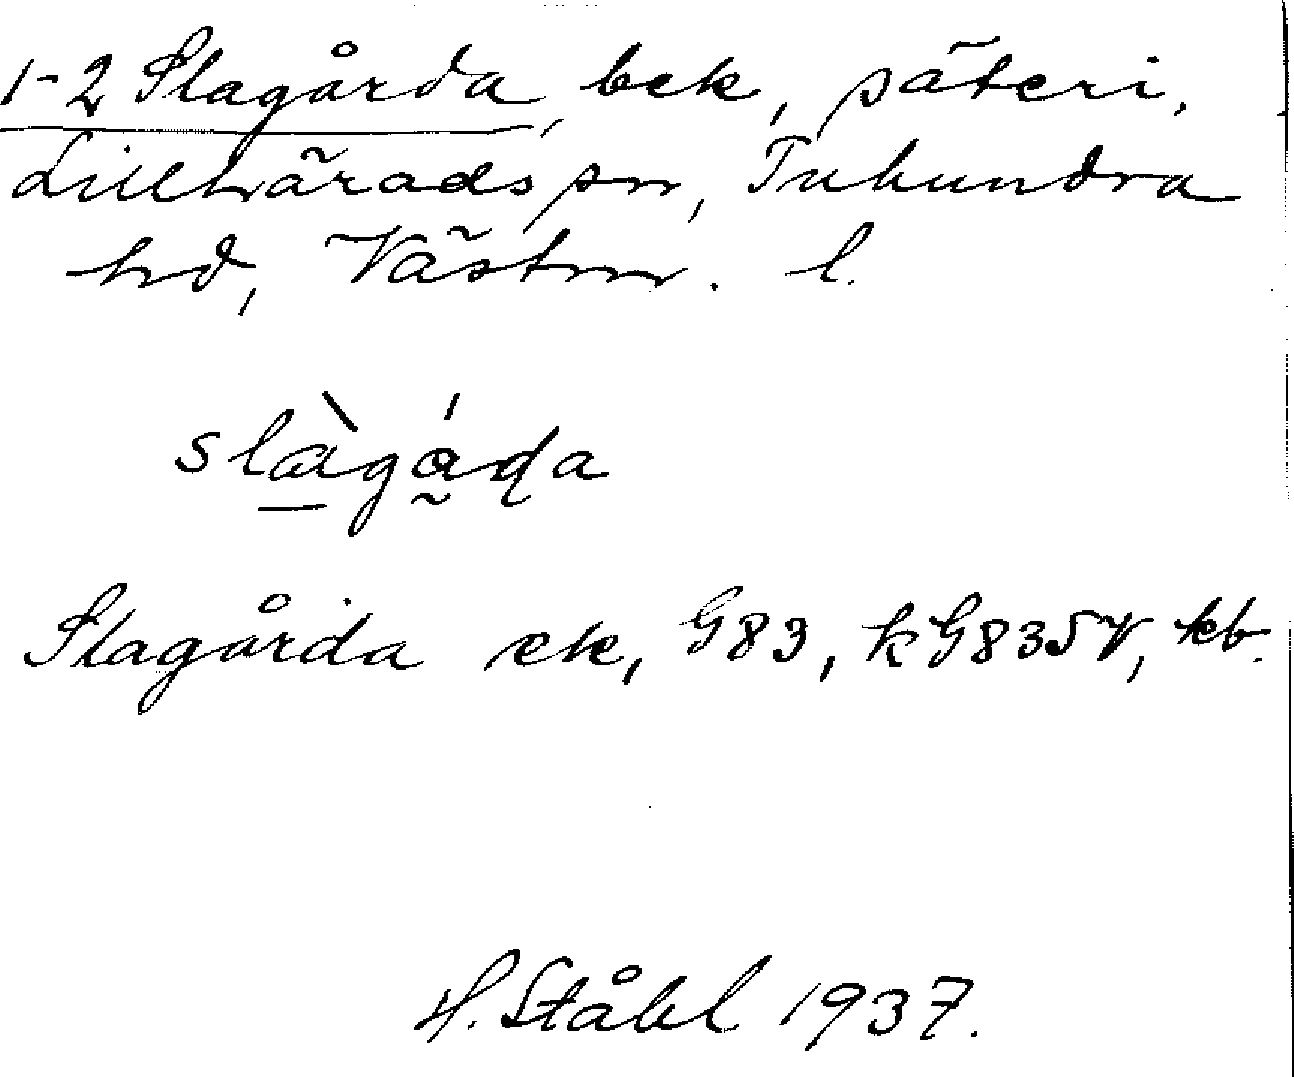 1-2 Slagårda, bek, säteri,
Lillhärads sn, Tuhundra
hd, Västm. l.
slàgáɖa
Slagårda ek, G83, kG83SV, kb.
H. Ståhl 1937.